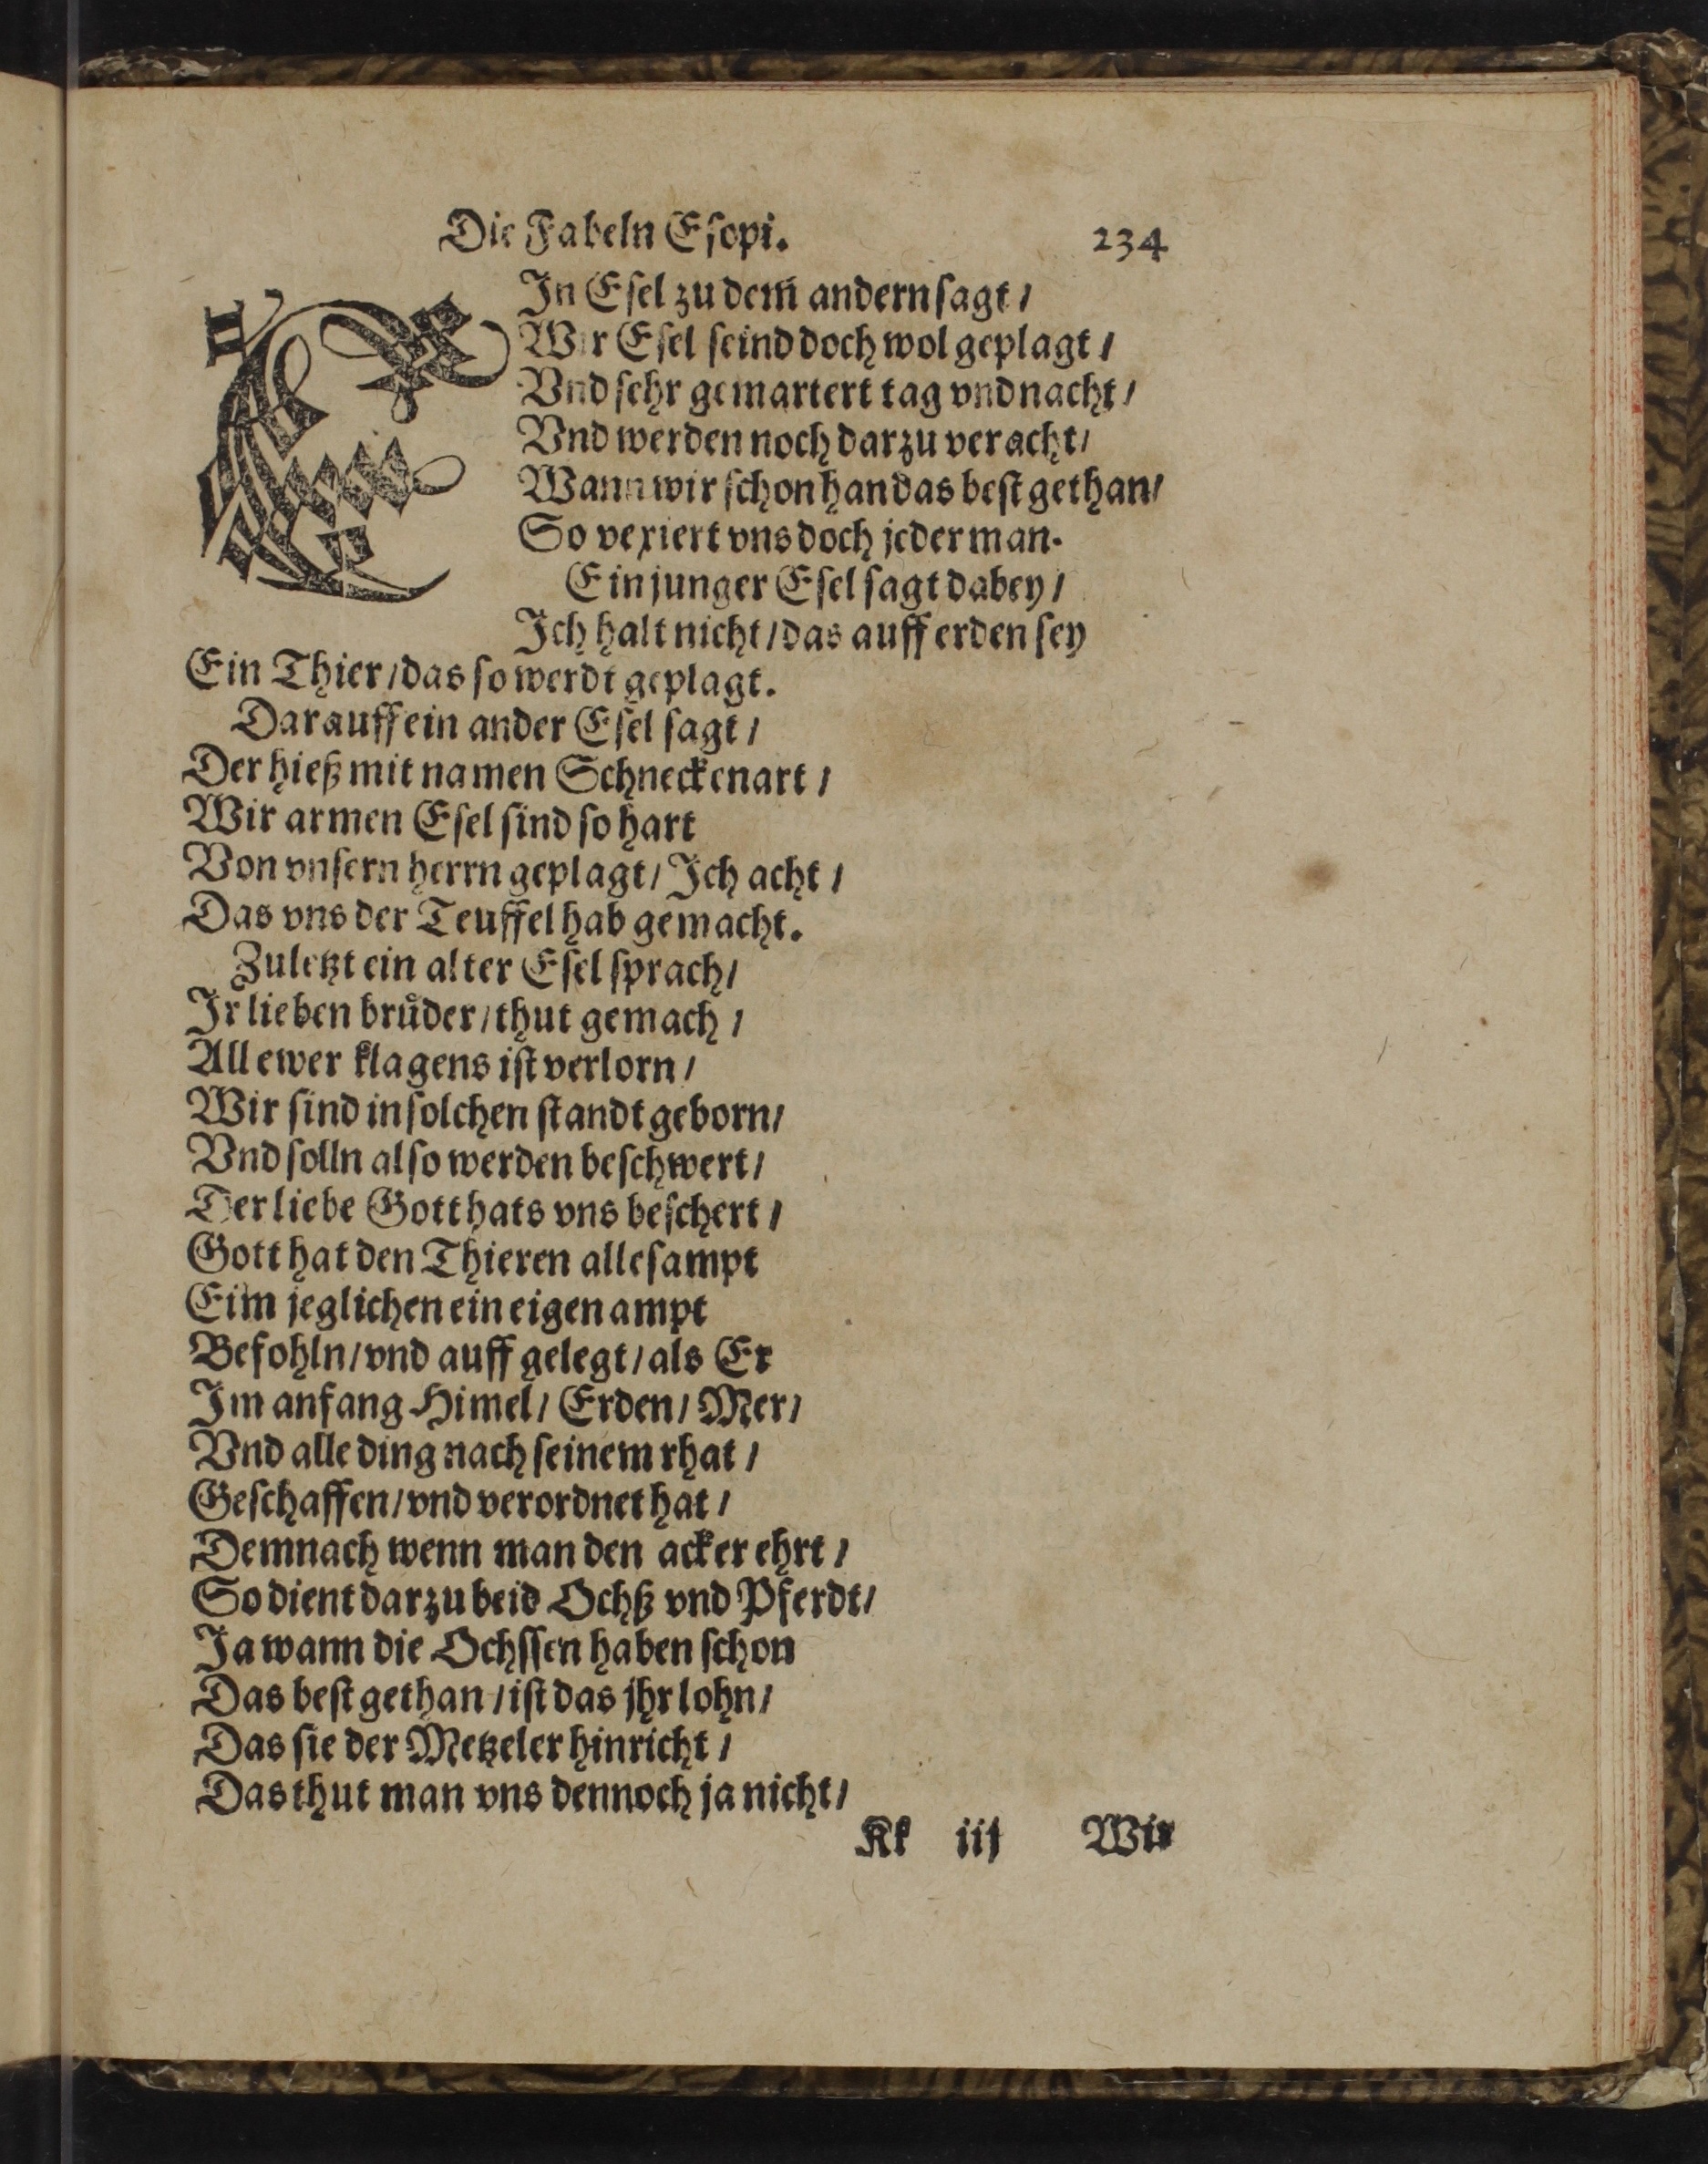 Die Fabeln Eſopi. 234
EIn Eſel zu dem̃ andern ſagt /
Wir Eſel ſeind doch wol geplagt /
Vnd ſehr gemartert tag vnd nacht /
Vnd werden noch darzu veracht /
Wann wir ſchon han das beſt gethan /
So vexiert vns doch jederman.
Ein junger Eſel ſagt dabey /
Ich halt nicht / das auff erden ſey
Ein Thier / das ſo werdt geplagt.
Darauff ein ander Eſel ſagt /
Der hieß mit namen Schneckenart /
Wir armen Eſel ſind ſo hart
Von vnſern herrn geplagt / Ich acht /
Das vns der Teuffel hab gemacht.
Zuletzt ein alter Eſel ſprach /
Ir lieben bruͤder / thut gemach /
All ewer klagens iſt verlorn /
Wir ſind in ſolchen ſtandt geborn /
Vnd ſolln alſo werden beſchwert /
Der liebe Gott hats vns beſchert /
Gott hat den Thieren alleſampt
Eim jeglichen ein eigen ampt
Befohln / vnd auff gelegt / als Er
Im anfang Himel / Erden / Mer /
Vnd alle ding nach ſeinem rhat /
Geſchaffen / vnd verordnet hat /
Demnach wenn man den acker ehrt /
So dient darzu beid Ochß vnd Pferdt /
Ja wann die Ochſſen haben ſchon
Das beſt gethan / iſt das jhr lohn /
Das ſie der Metzeler hinricht /
Das thut man vns dennoch ja nicht /
Kk iij Wir